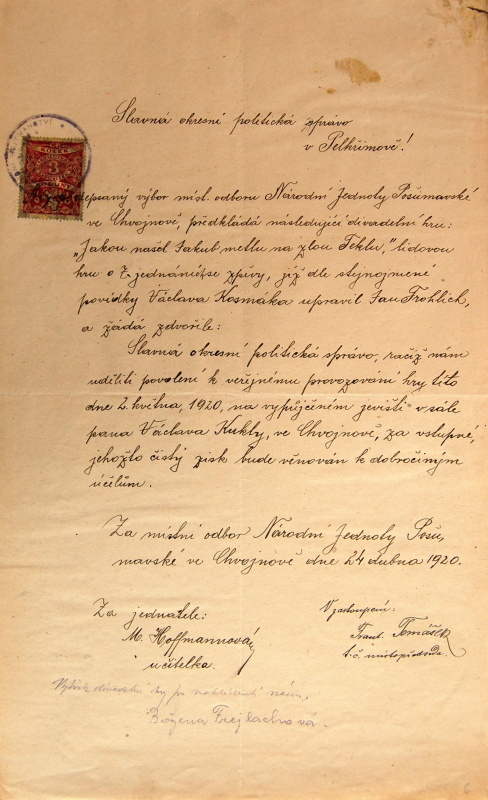 Slavná okresní politická správo
v Pelhřimově!
KOLEK
3
psaný výbor míst. odboru Národní Jednoty Pošumavské
ve Chvojnově, předkládá následující divadelní hru:
„Jakou našel Jakub metlu na zlou Teklu," lidovou
hru o 7. jednáních se zpěvy, již dle stejnojmené
povídky Václava Kosmáka upravil Jan Fröhlich,
a žádá zdvořile:
Slavná okresní politická správo, račiž nám
uděliti povolení k veřejnému provozování hry této
dne 2. května, 1920, na vypůjčeném jevišti v sále
pana Václava Kukly, ve Chvojnově, za vstupné,
jehožto čistý zisk bude věnován k dobročiným
účelům.
Za místní odbor Národní Jednoty Pošu,
mavské ve Chvojnově dne 24 dubna 1920.
Za jednatele:
M. Hoffmannová
učitelka.
V zastoupení:
Frant. Tomášek
t.č. místopředseda.
Výtisk divadelní hry
Božena Frejlachová.